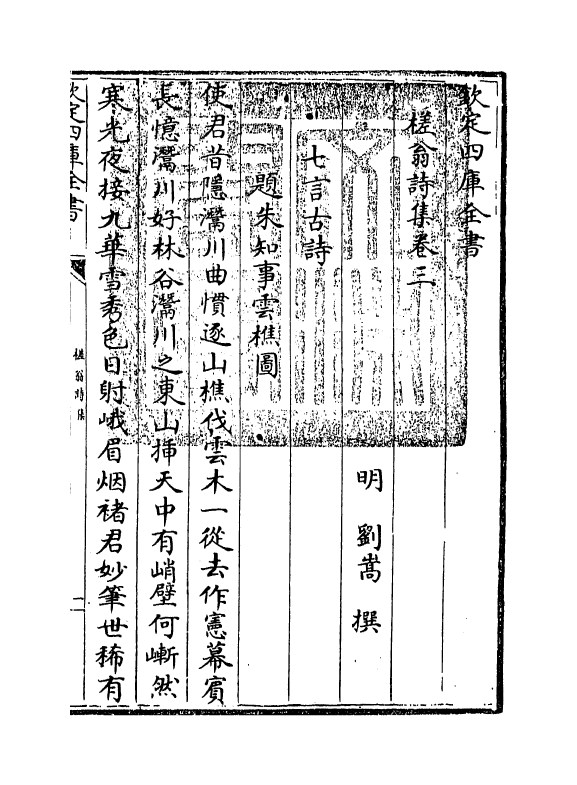 欽定四庫全書
槎翁詩集卷三
明 劉嵩 撰
七言古詩
題朱知事雲樵圖
使君昔隱灊川曲慣逐山樵伐雲木一從去作憲幕賓
長憶灊川好林谷灊川之東山揷天中有峭壁何嶃然
寒光夜接九華雪秀色日射峨眉烟褚君妙筆世稀有
欽定四庫全書
槎翁詩集